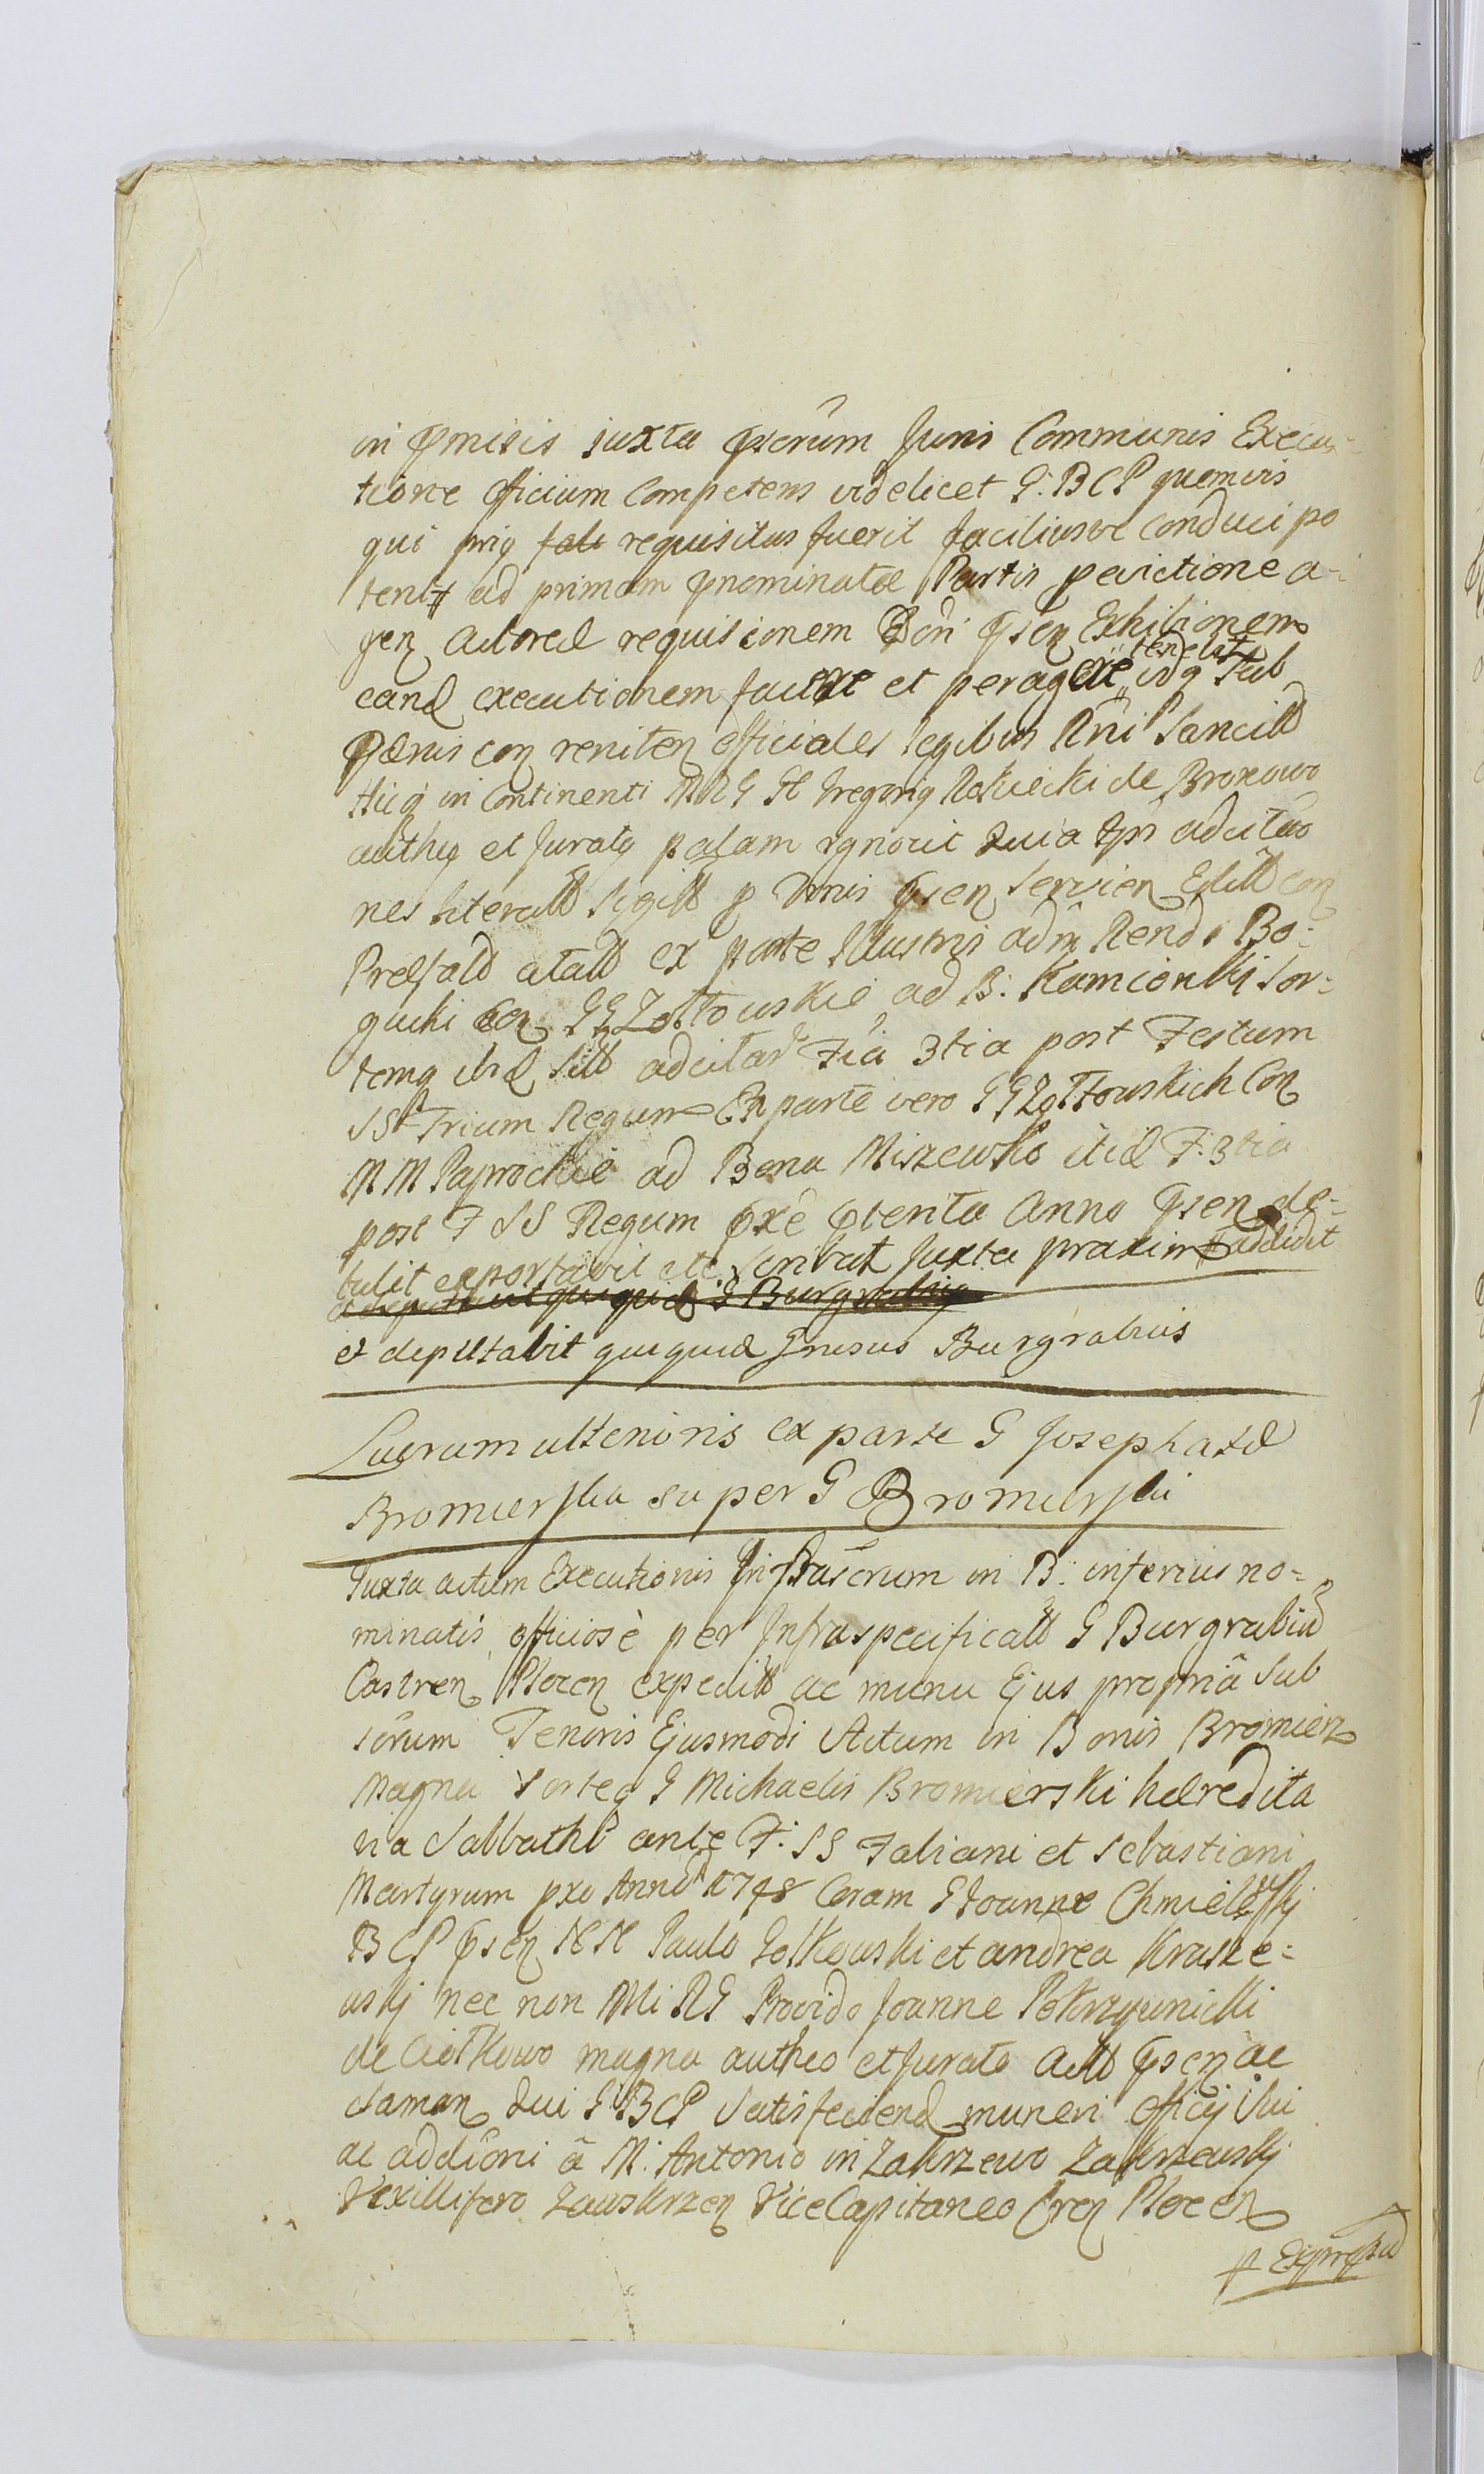 in pmisis juxta pscrum Juris Communis Execu-
tione officium Competens videlicet G. BCP quemvis
qui priq requisitus fuerit faciliusve conduci po
terit ad primam pnominatæ Partis pevictione a-
gen Actoreæ requisionem pscn Exhibionem
eand executionem facere et peragere tenebit idq sub
Pænis con reniten officiales legibus Rni Sancitt
Hicq in Continenti MRG H Gregoriq Rokicki de Broxowo
autheq et Juratq palam rgnovit Quia ipse adcitao
nes literatt Sigitt p Donis psen Servien Editt con
ex parte Illustris adm Rendi Bo-
gucki con GG Zołtowskie ad B. Kamionki Sor-
temq ibid Sitt adcitar Fia 3tia post Festum
SSt Trium Regum Ex parte vero GG Zołtowskich Con
MM Paprockie ad Bona Miszewko itid F. 3tia
post F SS Regum pxe pterita Anno psen de-
tulit exportavit etc. Juxta praxim addidit
et deputavit quiquid G Burgrabiq
et deputabit quiquid Gnrsus Burgrabius
Lucrum ulterioris ex parte G Josephatæ
Bromierska super G Bromierski
Juxta actum Executionis Infrascrum in B. inferius no-
minatis officiose per Infraspecificatt G Burgrabiu
Castren Plocen expeditt ac manu Ejus propriâ Sub
scrum Tenoris Ejusmodi Actum in Bonis Bromierz
Magna Sorteq G Michaelis Bromierski hæredita
ria Sabbatho ante F. SS Fabiani et Sebastiani
Martyrum pxo Anno D 1748 Coram G Joanne Chmielewskj
BCP psen NN Paulo Żołkowski et andrea Krasze-
wskj nec non Mi RG Provido Joanne Pokrzywnicki
de Ciołkowo magna autheo et Jurato actt psen ac
daman Qui G BCP Satisfaciend muneri officij Sui
ac addicioni â M. Antonio in Zakrzewo Zakrzewskj
Vexillifero Zawskrzen ViceCapitaneo Cren Plocen
p Expressu